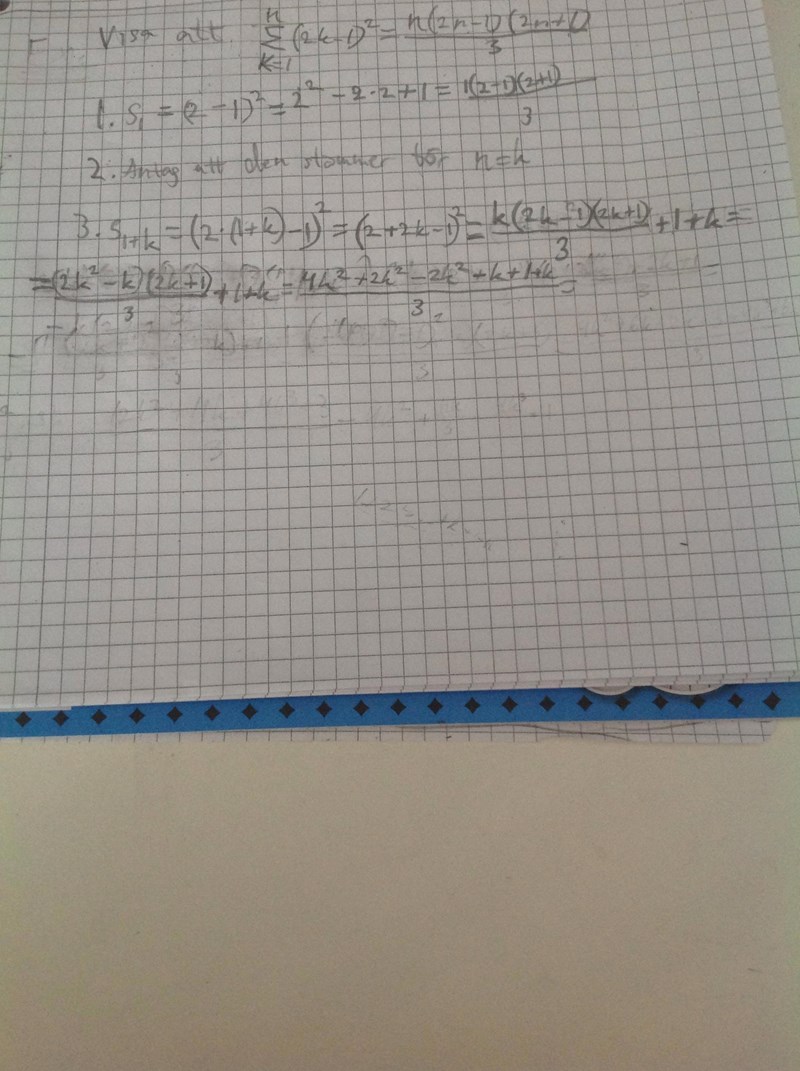 Visa att \sum_{k=1}^{n} (2k-1)^2 = \frac{n(2n-1)(2n+1)}{3}
1. S_1 = (2-1)^2 = 2^2 - 2·2+1 = \frac{1(2-1)(2+1)}{3}
2. Antag att den stämmer för n=k
3. S_{1+k} = (2·(1+k)-1)^2 = (2+2k-1)^2 = \frac{k(2k-1)(2k+1)}{3} +1+k =
= \frac{(2k^2-k)(2k+1)}{3} +1+k = \frac{4k^3+2k^2-2k^2+k+1+k}{3} =